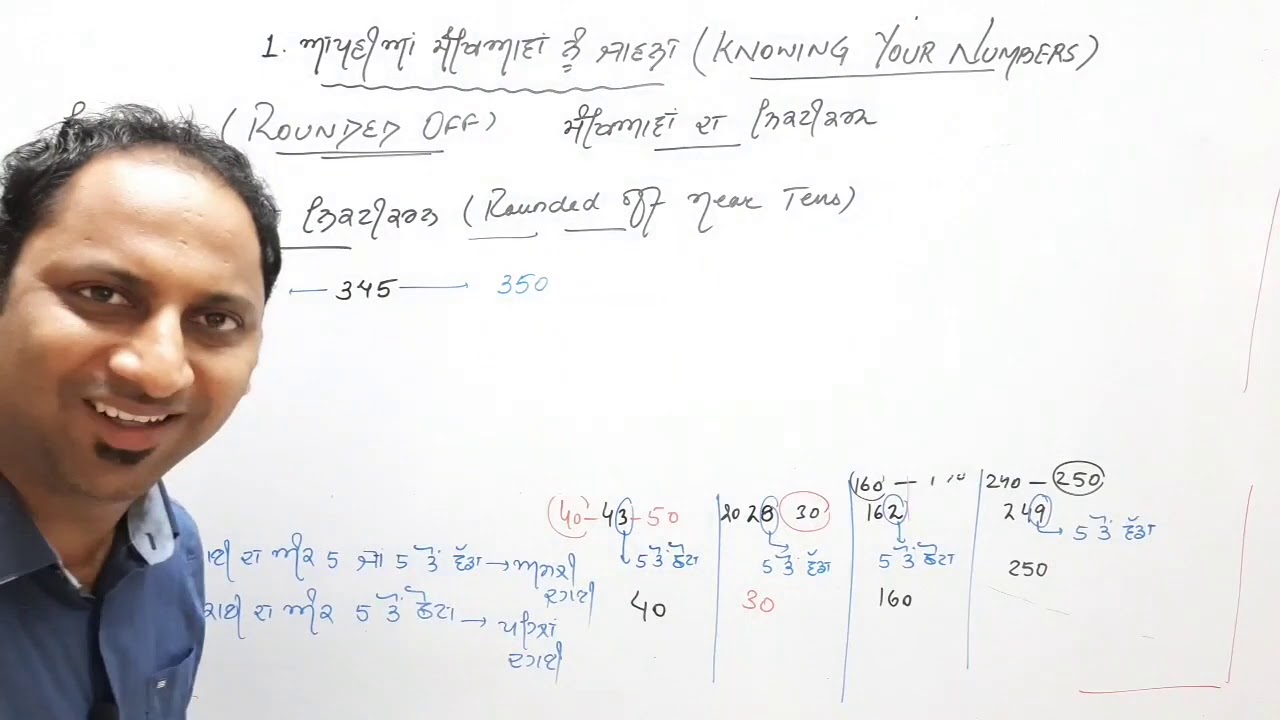 1. ਆਪਣੀਆਂ ਸੰਖਿਆਵਾਂ ਨੂੰ ਜਾਣਨਾ (KNOWING YOUR NUMBERS)
(ROUNDED OFF) ਸੰਖਿਆਵਾਂ ਦਾ ਨਿਕਟੀਕਰਨ
ਨਿਕਟੀਕਰਨ (Rounded off near Tens)
345 350
160 — 240 — 250
40 – 43 – 50 20 28 30 162 249
5 ਤੋਂ ਵੱਡਾ
ਦਾ ਅੰਕ 5 ਜਾਂ 5 ਤੋਂ ਵੱਡਾ → ਅਗਲੀ ਦਹਾਈ 5 ਤੋਂ ਛੋਟਾ 5 ਤੋਂ ਵੱਡਾ 5 ਤੋਂ ਛੋਟਾ 250
ਦਾ ਅੰਕ 5 ਤੋਂ ਛੋਟਾ → ਪਹਿਲਾਂ ਦਹਾਈ 40 30 160